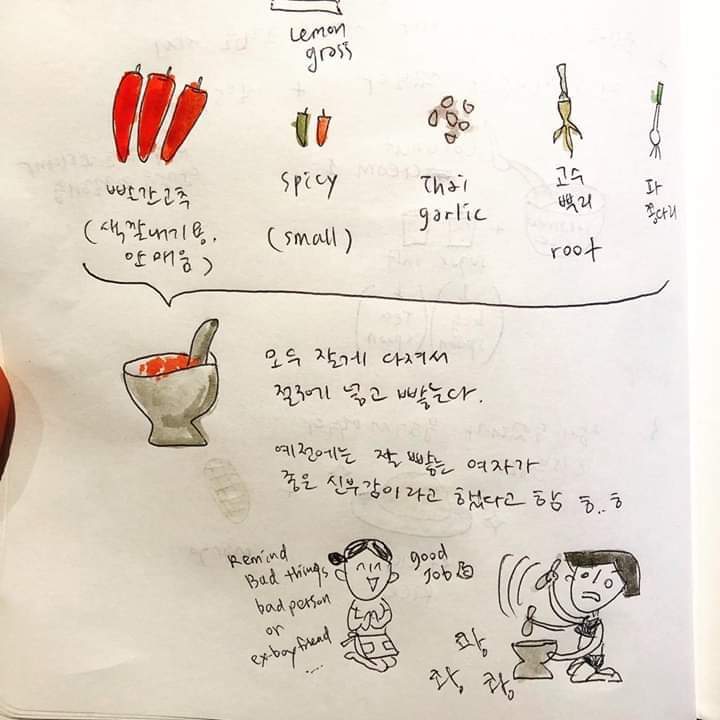 Lemon
grass
빠알간고추
(색깔내기용,
안매움)
spicy
(small)
Thai
garlic
고수
뿌리
root
파
쫑다리
모두 잘게 다져서
절구에 넣고 빻는다.
예전에는 잘 빻는 여자가
좋은 신부감이라고 했다고 함 ㅎ..ㅎ
Remind
Bad things
bad person
or
ex-boyfriend
....
good
Job
콰
촹 촹